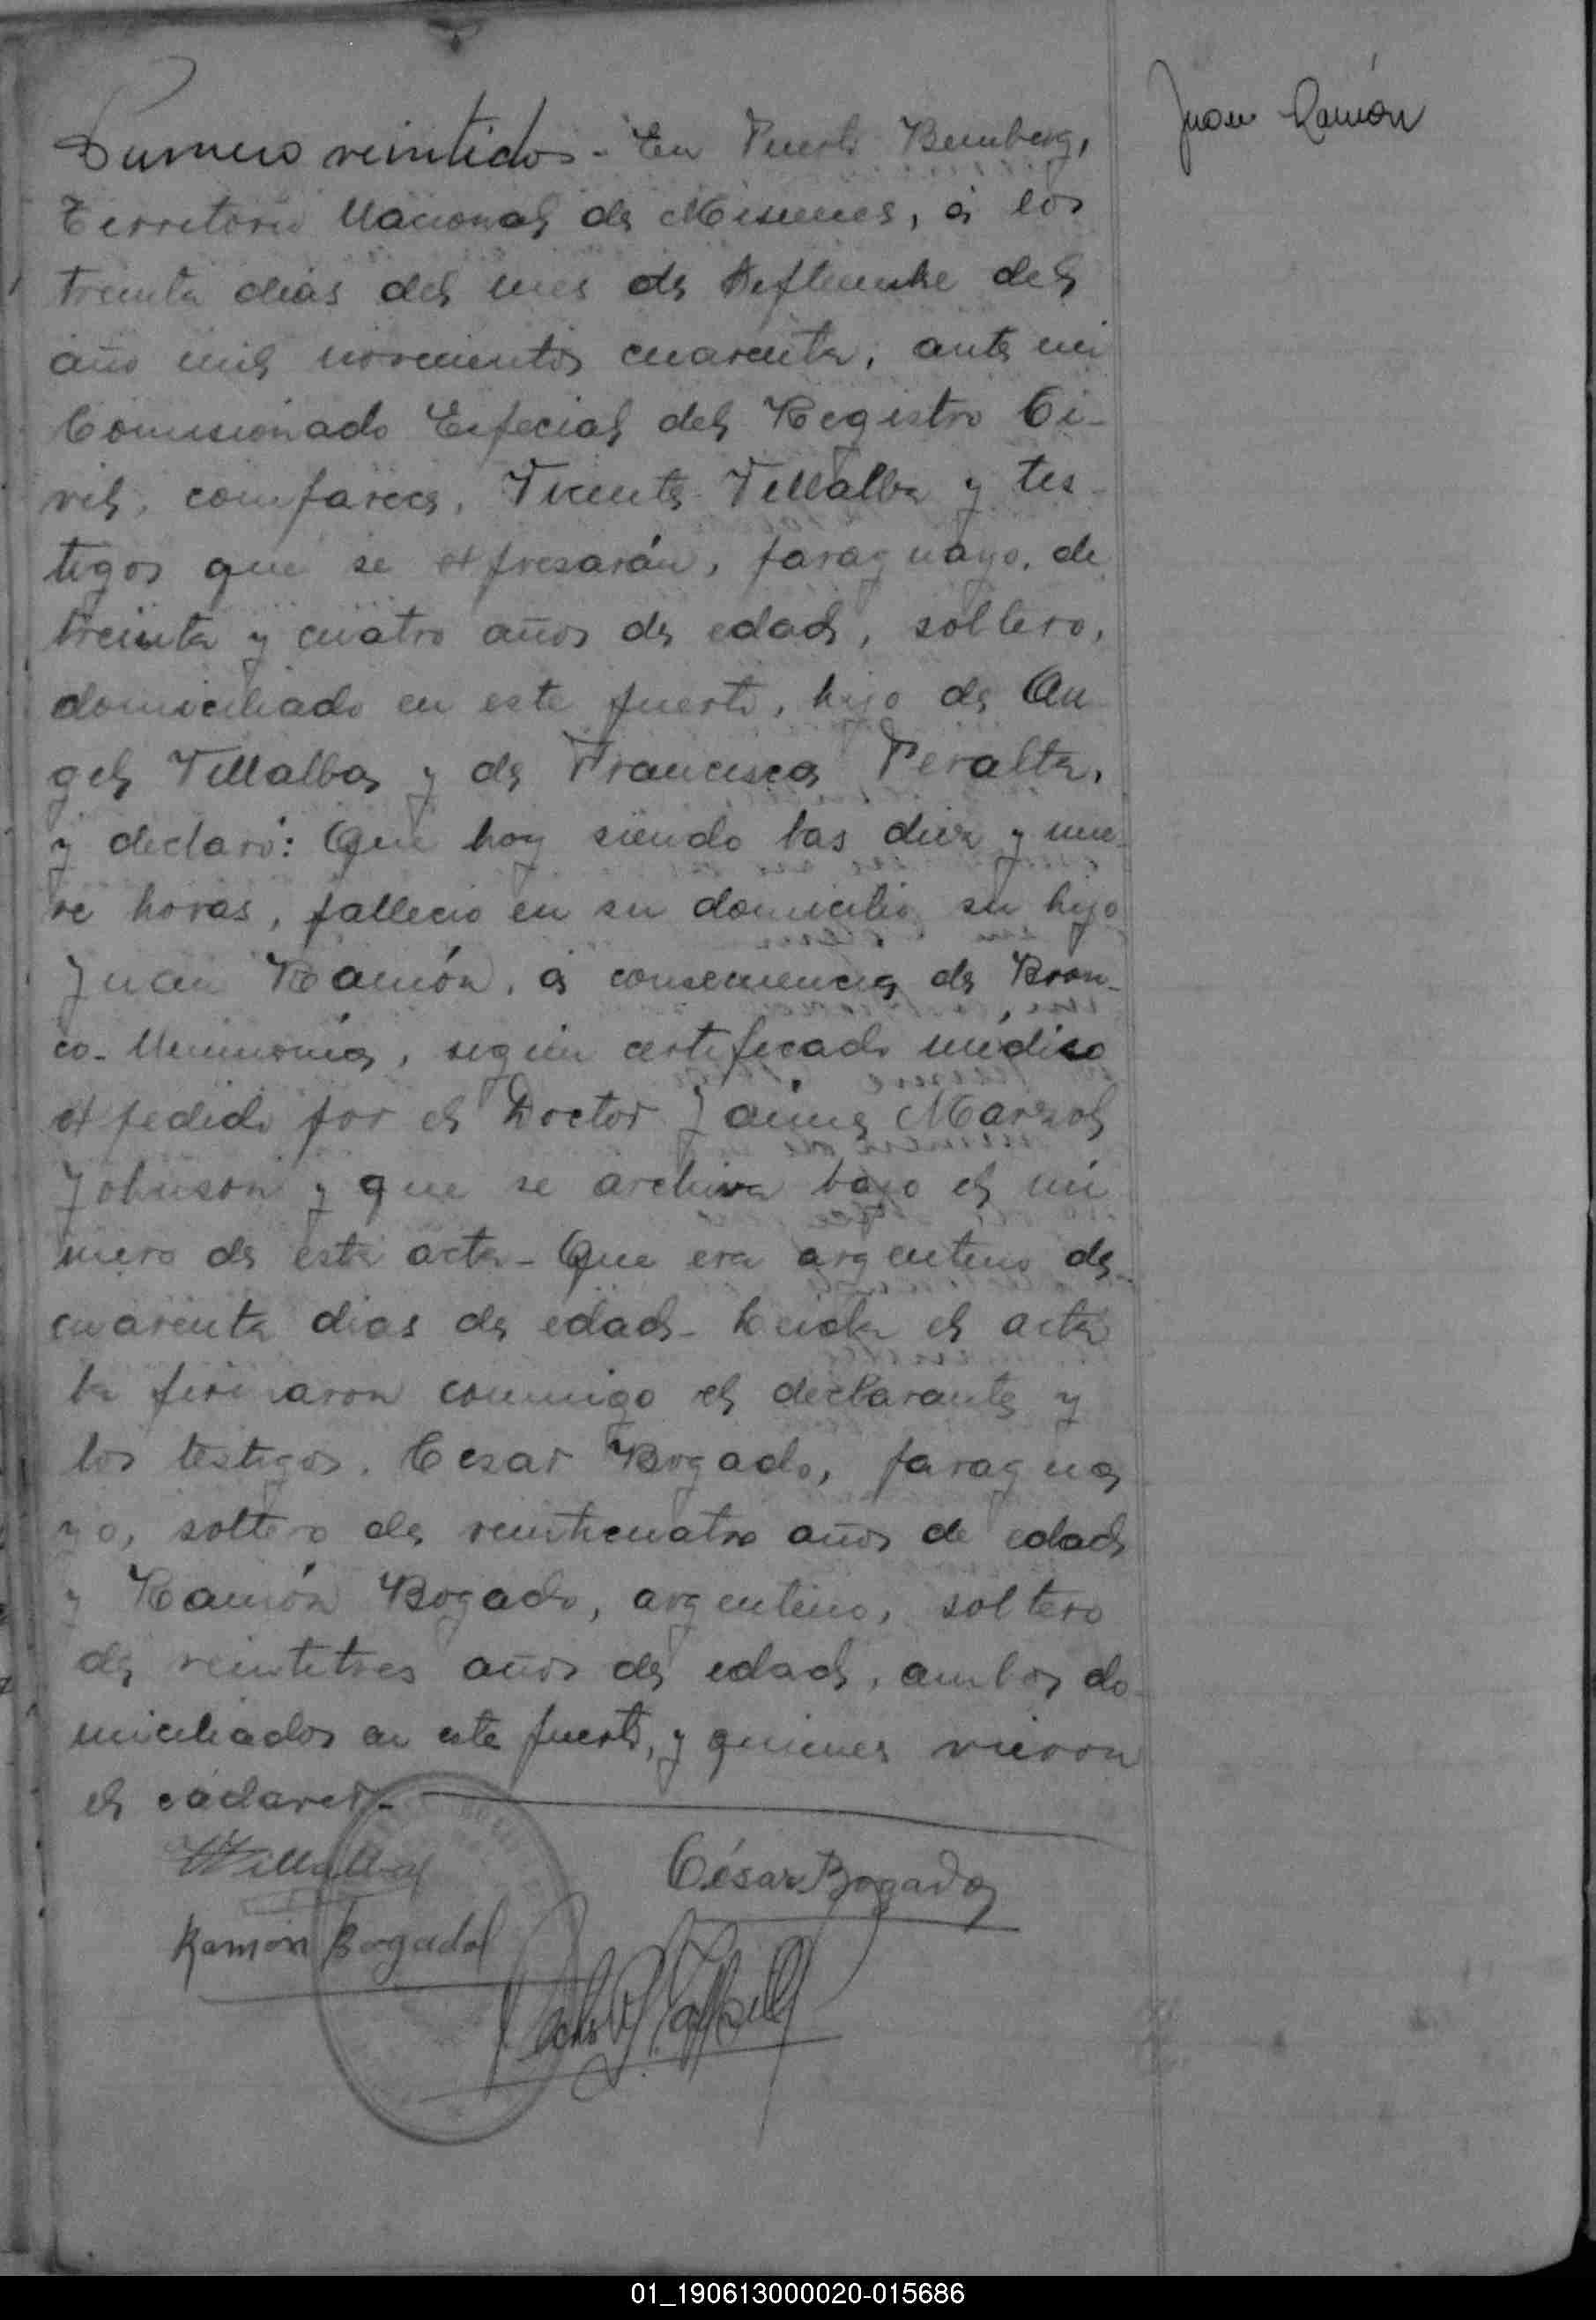 Juan Ramón
Numero veintidos - En Puerto Bemberg,
Territorio Nacional de Misiones, á los
treinta dias del mes de Septiembre del
año mil novecientos cuarenta, ante mi
Comisionado Especial del Registro Ci-
vil, comparece, Vicente Villalba y tes-
tigos que se expresarán, paraguayo, de
treinta y cuatro años de edad, soltero,
domiciliado en este puerto, hijo de An
gel Villalba y de Francisca Peralta,
y declaró: Que hoy siendo las diez y nue-
ve horas, fallecio en su domicilio su hijo
Juan Ramón, á consecuencia de Bron-
co-Neumonia, según certificado médico
expedido por el Doctor Jaime
Johnson y que se archiva bajo el nú
mero de esta acta - Que era argentino de
cuarenta dias de edad - Leida el acta
la firmaron conmigo el declarante y
los testigos. Cesar Bogado, paragua
yo, soltero de veinticuatro años de edad
y Ramón Bogado, argentino, soltero
de veintitres años de edad, ambos do-
miciliados en este puerto, y quienes vieron
el cadaver -
Villalba
César Bogado
Ramón Bogado
01_190613000020-015686